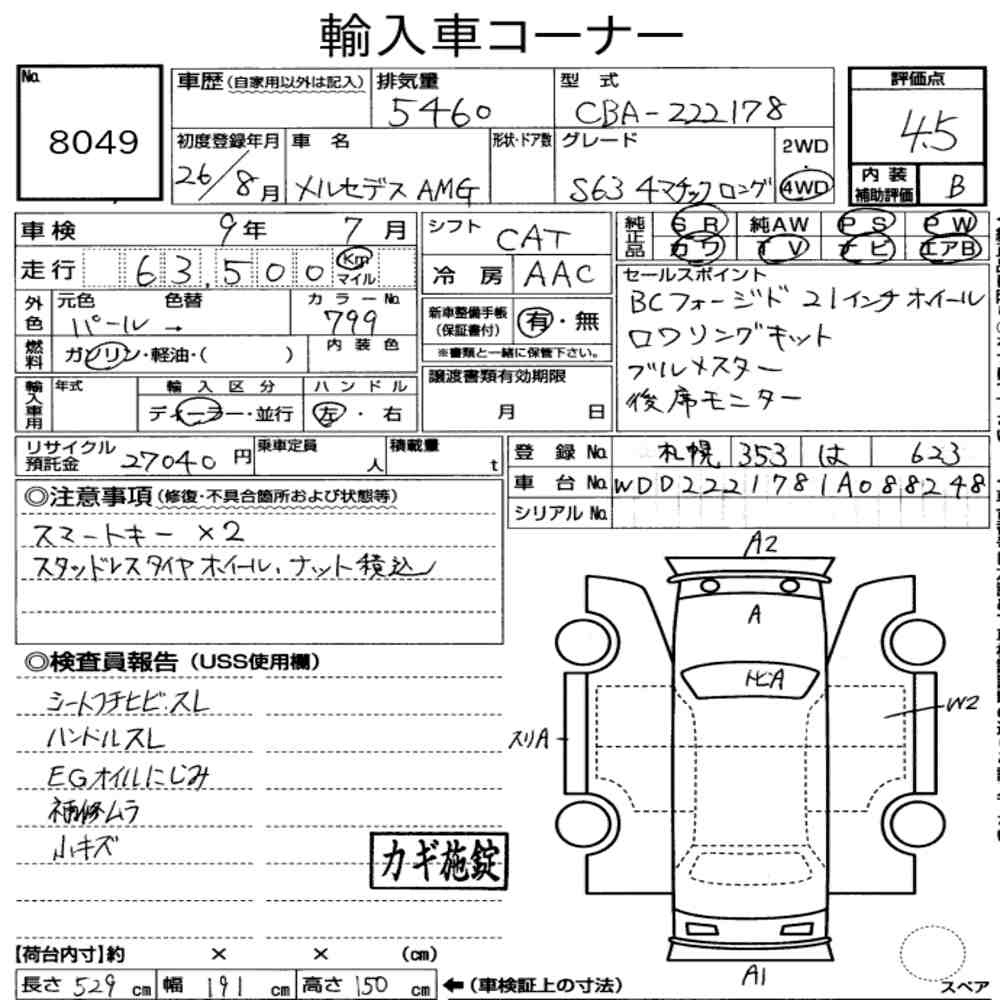 輸入車コーナー
No. 8049
車歴(自家用以外は記入) 排気量 5460 型式 CBA-222178
初度登録年月 26/8月 車名 メルセデスAMG 形状・ドア数 グレード S63 4マチックロング 2WD 4WD
評価点 4.5
内装補助評価 B
車検 9年 7月
走行 63,500 Km マイル
外色 元色 パール → 色替 カラーNo. 799
燃料 ガソリン・軽油・( ) 内装色
輸入車用 年式 輸入区分 ディーラー・並行 ハンドル 左・右
リサイクル預託金 27040円 乗車定員 人 積載量 t
シフト CAT
冷房 AAC
新車整備手帳(保証書付) 有・無
※書類と一緒に保管下さい。
譲渡書類有効期限
月 日
純正品 SR 純AW PS PW
カワ TV ナビ エアB
セールスポイント
BCフォージド 21インチホイール
ロワリングキット
ブルメスター
後席モニター
登録No. 札幌 353 は 623
車台No. WDD2221781A088248
シリアルNo.
◎注意事項(修復・不具合箇所および状態等)
スマートキー ×2
スタッドレスタイヤホイール、ナット積込
◎検査員報告(USS使用欄)
シートフチヒビ・スレ
ハンドルスレ
EGオイルにじみ
補修ムラ
小キズ
カギ施錠
A2
A
トビA
W2
スリA
A1
スペア
【荷台内寸】約 × × (cm)
長さ 529 cm 幅 191 cm 高さ 150 cm ←(車検証上の寸法)